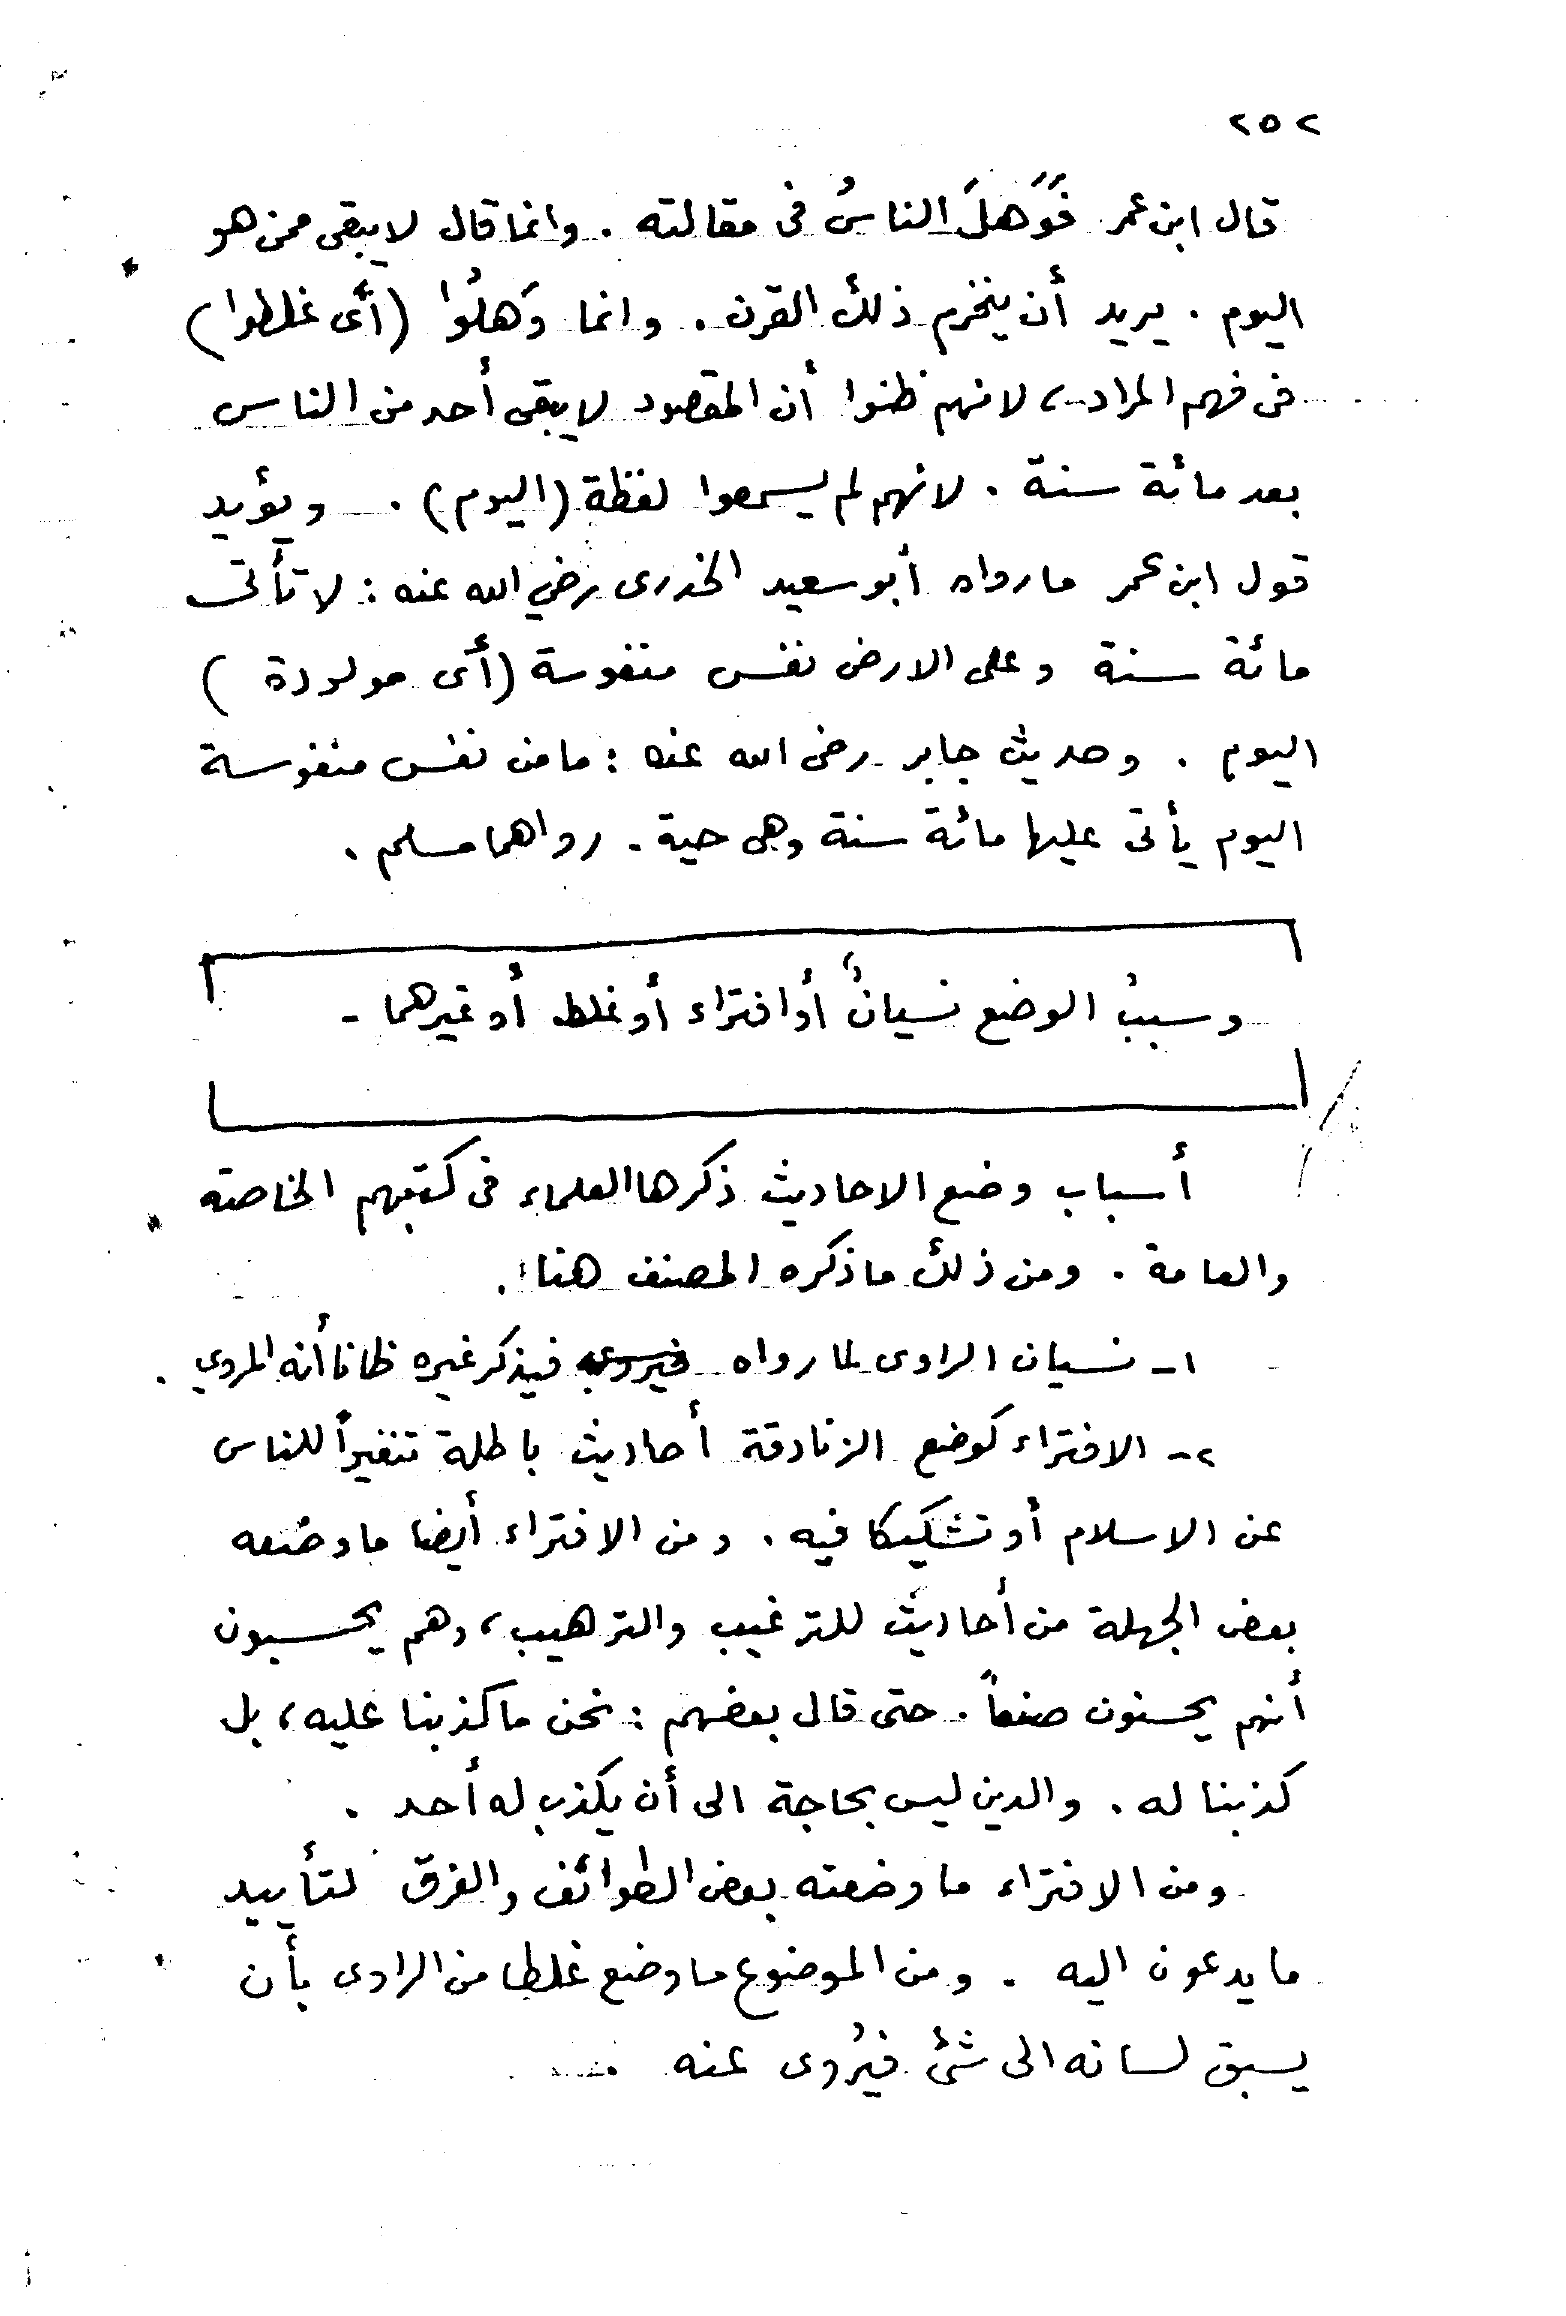 ٢٥٢
قال ابن عمر فَوَهَلَ الناسُ فى مقالته . وانما قال لا يبقى ممن هو
اليوم . يريد أن ينخرم ذلك القرن . وانما وَهَلُوا (أى غلطوا)
فى فهم المراد، لانهم ظنوا أن المقصود لا يبقى أحد من الناس
بعد مائة سنة . لانهم لم يسمعوا لفظة (اليوم) . ويؤيد
قول ابن عمر مارواه أبو سعيد الخدرى رضي الله عنه : لا تأتى
مائة سنة وعلى الارض نفس منفوسة (أى مولودة )
اليوم . وحديث جابر رضى الله عنه : ما من نفس منفوسة
اليوم يأتى عليها مائة سنة وهى حية . رواهما مسلم .
وسببُ الوضع نسيانٌ أو افتراء أو غلط أو غيرهما -
أسباب وضع الاحاديث ذكرها العلماء فى كتبهم الخاصة
والعامة . ومن ذلك ما ذكره المصنف هنا .
١- نسيان الراوى لما رواه فيذكر غيره ظانا أنه المروي .
٢- الافتراء كوضع الزنادقة أحاديث باطلة تنفيراً للناس
عن الاسلام أو تشكيكا فيه . ومن الافتراء أيضا ما وضعه
بعض الجهلة من أحاديث للترغيب والترهيب، وهم يحسبون
أنهم يحسنون صنعاً . حتى قال بعضهم : نحن ما كذبنا عليه، بل
كذبنا له . والدين ليس بحاجة الى أن يكذب له أحد .
ومن الافتراء ما وضعته بعض الطوائف والفرق لتأييد
ما يدعون اليه . ومن الموضوع ما وضع غلطا من الراوى بأن
يسبق لسانه الى شئ فيُروى عنه